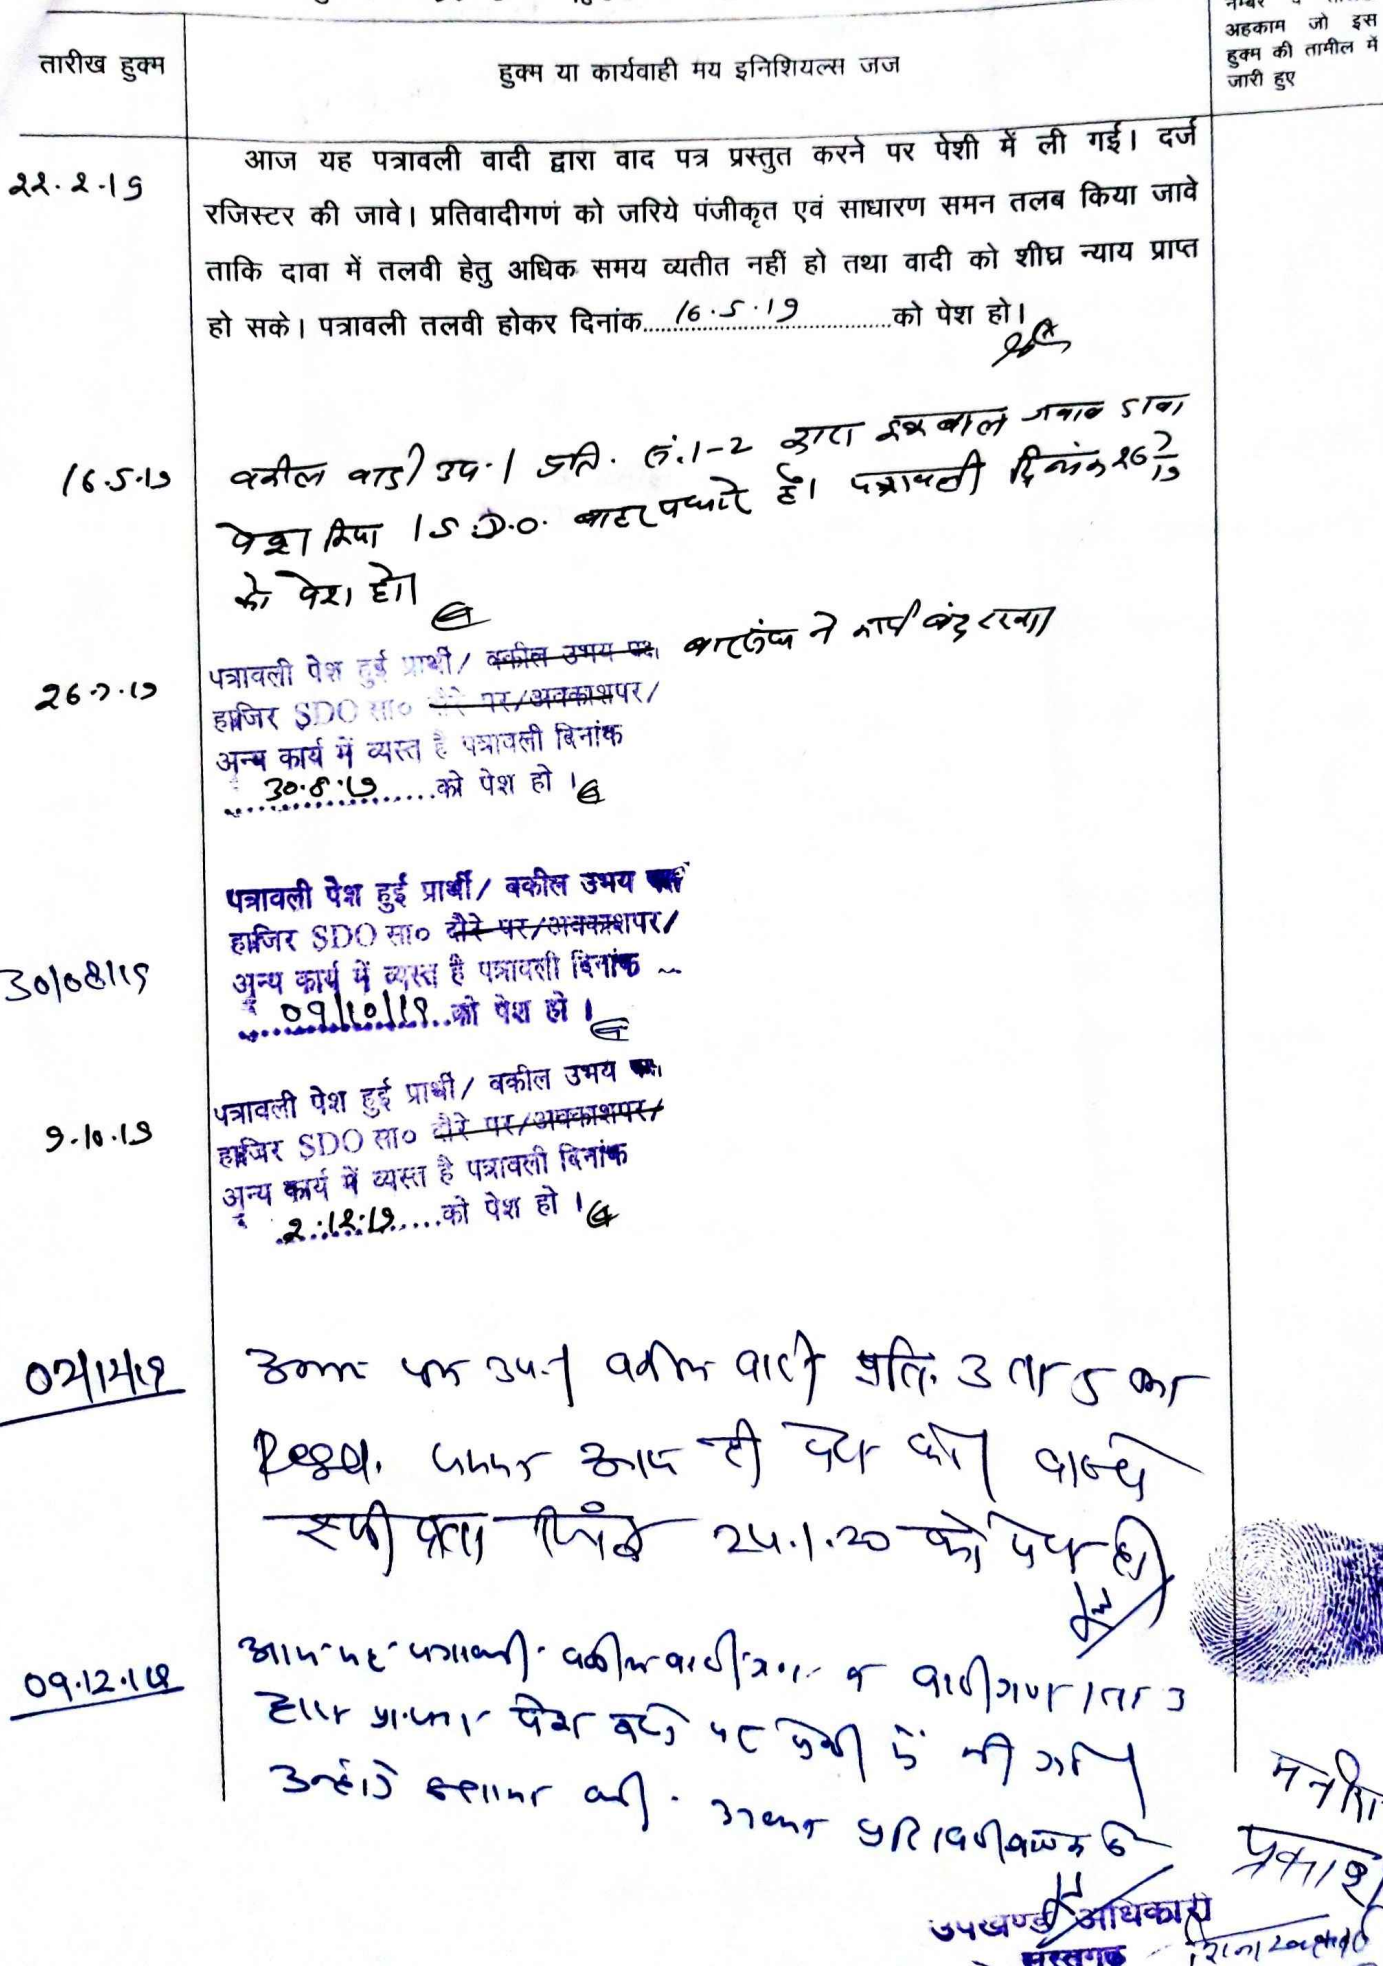 अहकाम जो इस
हुक्म की तामील में
जारी हुए
तारीख हुक्म
हुक्म या कार्यवाही मय इनिशियल्स जज
22.2.19
आज यह पत्रावली वादी द्वारा वाद पत्र प्रस्तुत करने पर पेशी में ली गई। दर्ज
रजिस्टर की जावे। प्रतिवादीगणं को जरिये पंजीकृत एवं साधारण समन तलब किया जावे
ताकि दावा में तलवी हेतु अधिक समय व्यतीत नहीं हो तथा वादी को शीघ्र न्याय प्राप्त
हो सके। पत्रावली तलवी होकर दिनांक 16.5.19 को पेश हो।
16.5.19
वकील वादी उप.। प्रति. सं.1-2 द्वारा इकबाल जवाब दावा
पेश किया। S.D.O. बाहर पधारे है। पत्रावली दिनांक 26 7/19
को पेश हो।
26.7.19
पत्रावली पेश हुई प्रार्थी/ वकील उभय पक्ष बारसंघ ने कार्य बंद रखा।
हाजिर SDO सा० दौरे पर/अवकाशपर/
अन्य कार्य में व्यस्त है पत्रावली दिनांक
30.8.19 को पेश हो।
30/08/19
पत्रावली पेश हुई प्रार्थी/ वकील उभय पक्ष
हाजिर SDO सा० दौरे पर/अवकाशपर/
अन्य कार्य में व्यस्त है पत्रावली दिनांक
09/10/19 को पेश हो।
9.10.19
पत्रावली पेश हुई प्रार्थी/ वकील उभय पक्ष
हाजिर SDO सा० दौरे पर/अवकाशपर/
अन्य कार्य में व्यस्त है पत्रावली दिनांक
2.12.19 को पेश हो।
02/12/19
उप. वकील वादी प्रति. 3 ता 5 का
Regd. आज ही पेश
24.1.20 को पेश हो।
09.12.19
आज यह पत्रावली वकील वादीगण व वादीगण 1 ता 3
द्वारा पेश करने पर पेशी में ली गई।
उन्होंने
प्रकाश
उपखण्ड अधिकारी